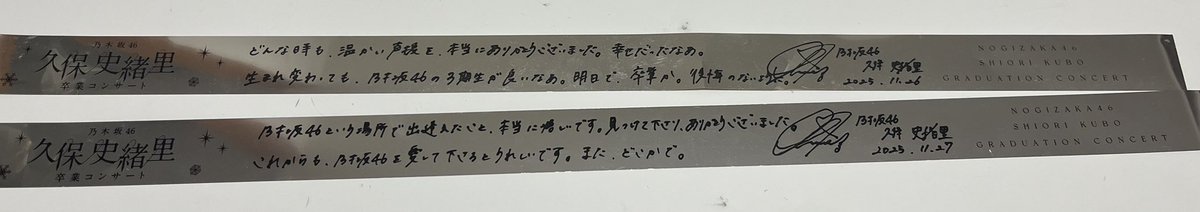 乃木坂46
久保史緒里
卒業コンサート
どんな日も、温かい声援を、本当にありがとうございました。幸せだったなあ。
生まれ変わっても、乃木坂46の3期生が良いなあ。明日で、卒業か。後悔のないように。
乃木坂46
久保 史緒里
2025.11.26
NOGIZAKA46
SHIORI KUBO
GRADUATION CONCERT
乃木坂46
久保史緒里
卒業コンサート
乃木坂46という場所で出逢えたこと、本当に嬉しいです。見つけて下さり、ありがとうございました
これからも、乃木坂46を愛して下さるとうれしいです。また、どこかで。
乃木坂46
久保 史緒里
2025.11.27
NOGIZAKA46
SHIORI KUBO
GRADUATION CONCERT